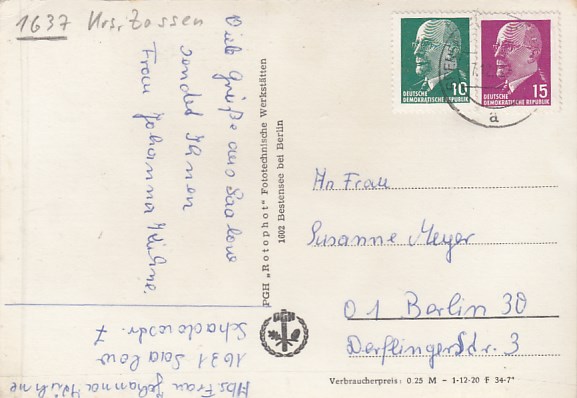 1637 Krs. Zossen
Viele Grüße aus Saalow
sendet Ihnen
Frau Johanna Kühne.
Abs. Frau Johanna Kühne
1631 Saalow
Schadowstr. 7
PGH „Rotophot" Fototechnische Werkstätten
1602 Bestensee bei Berlin
PGH
10
DEUTSCHE
DEMOKRATISCHE REPUBLIK
15
DEUTSCHE
DEMOKRATISCHE REPUBLIK
a
An Frau
Susanne Meyer
01 Berlin 30
Derflingerstr. 3
Verbraucherpreis: 0.25 M - 1-12-20 F 34-7*